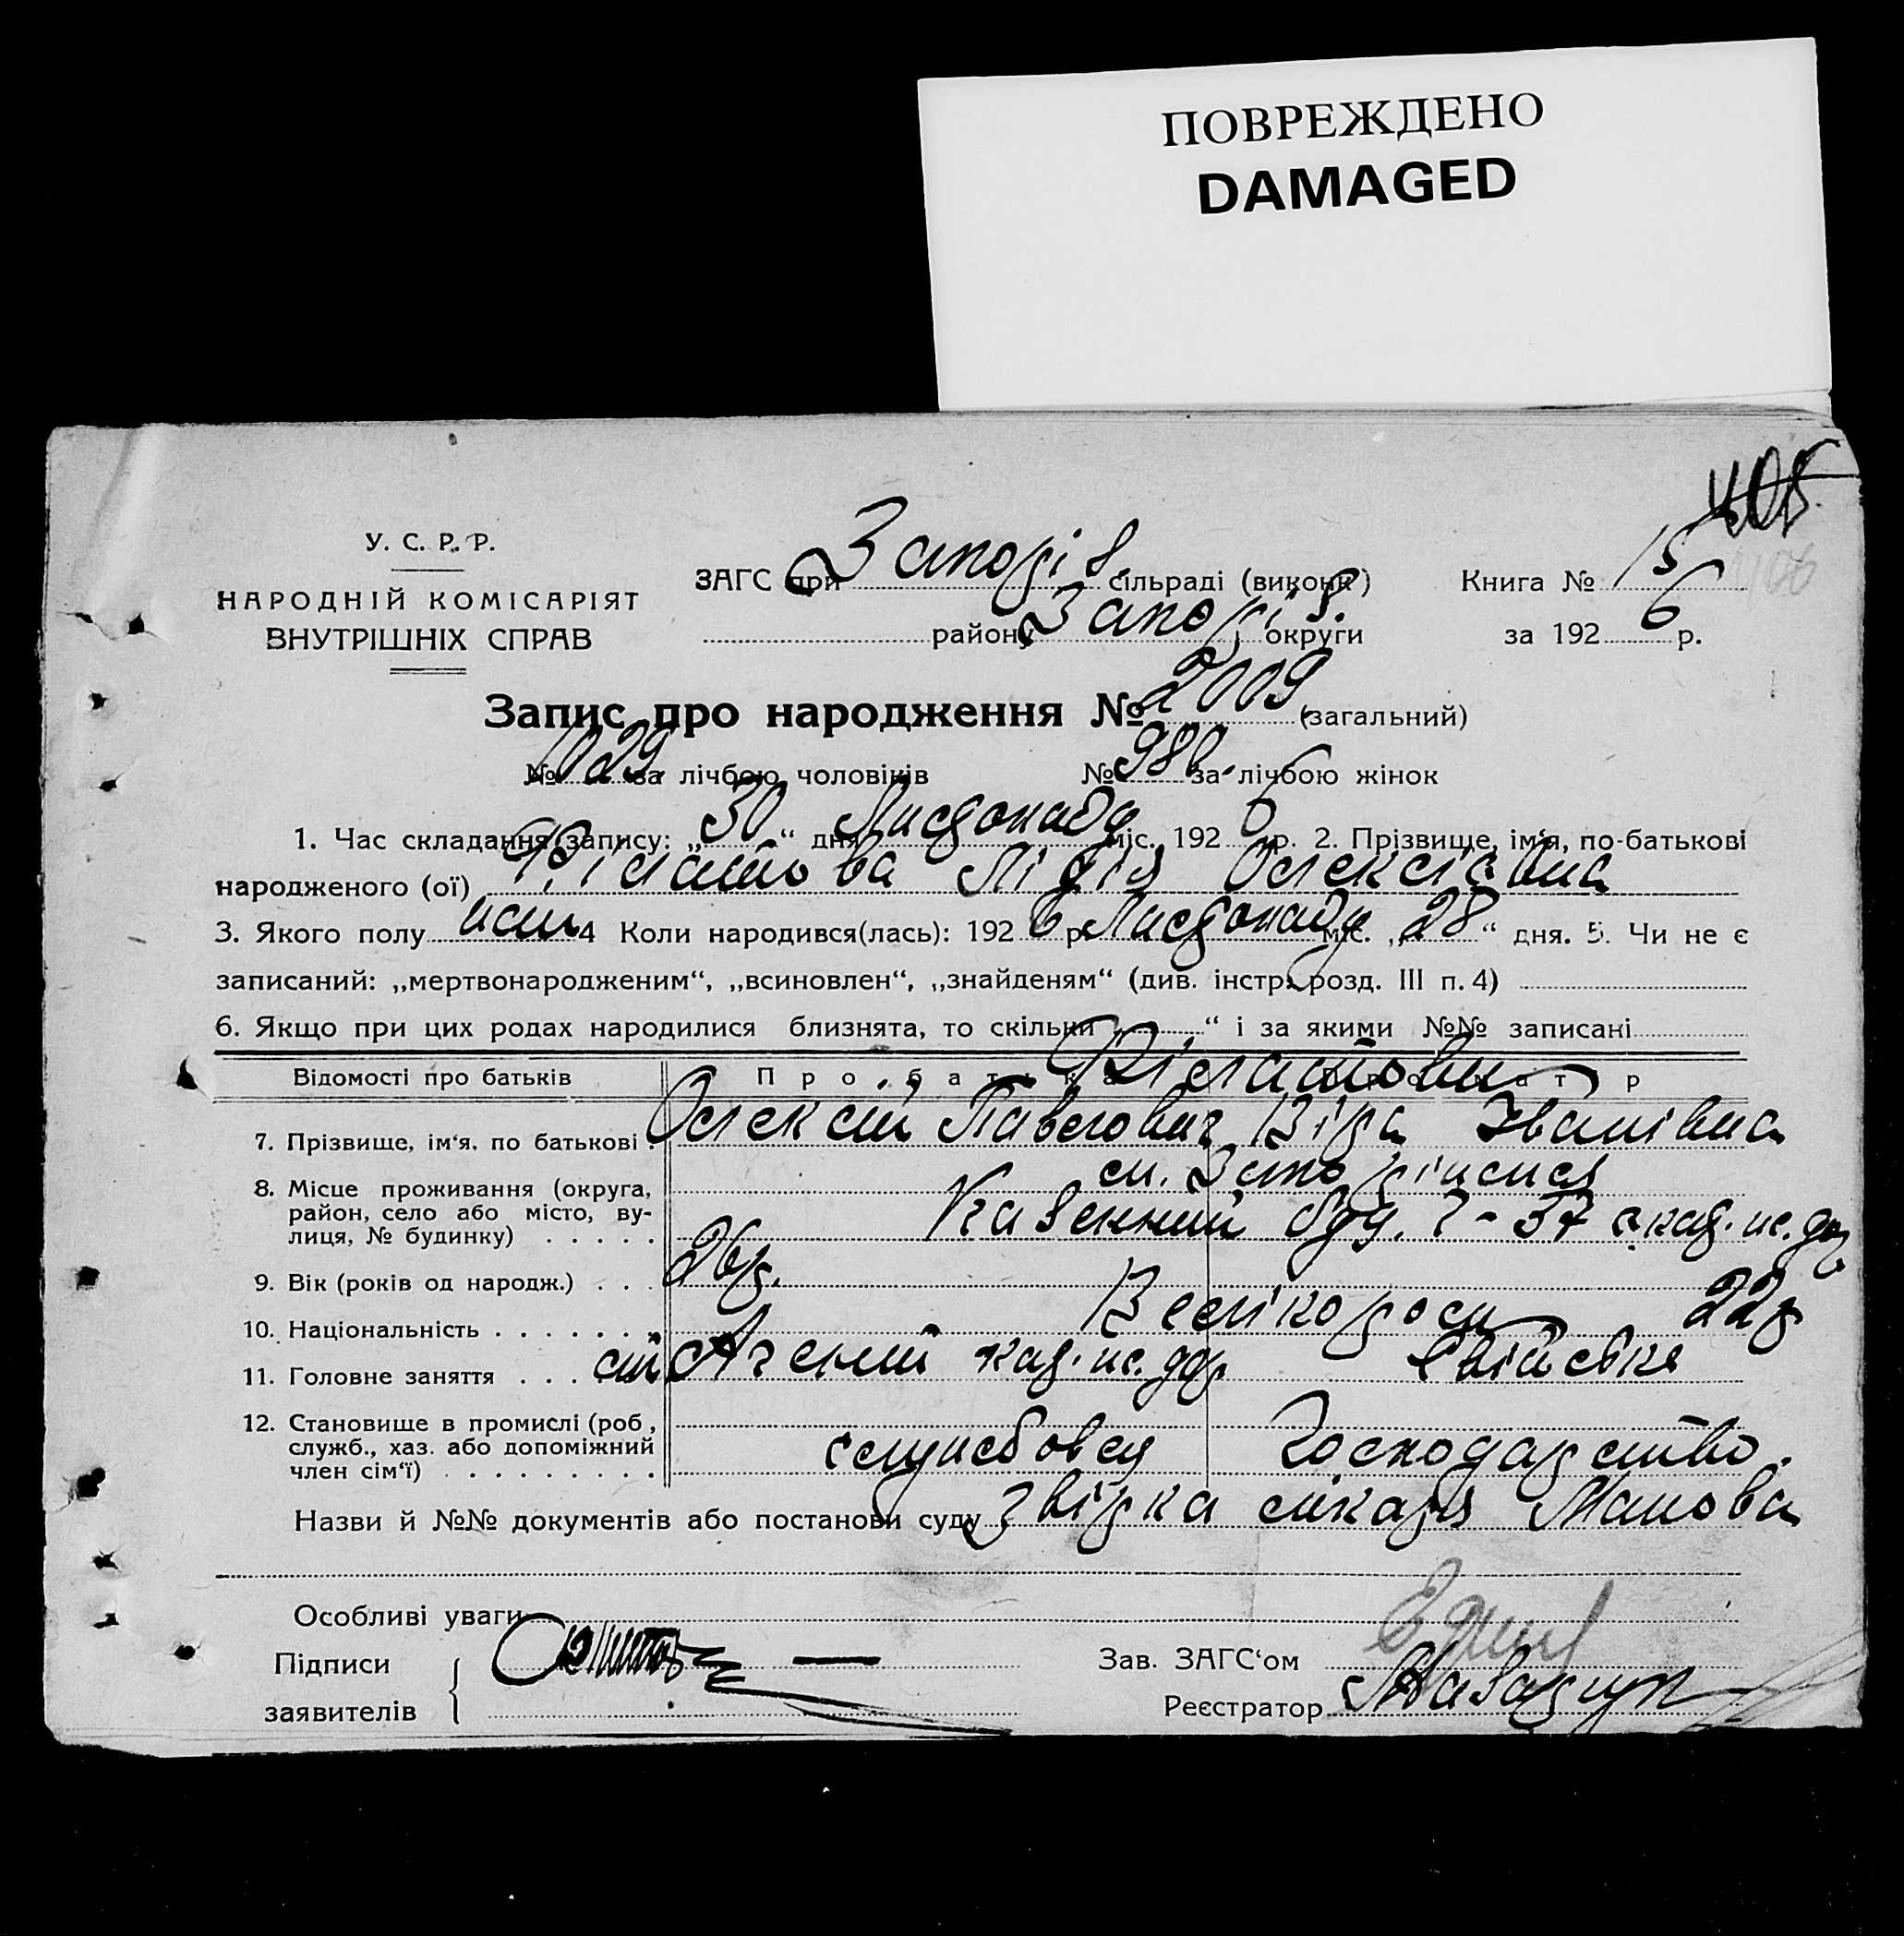 ПОВРЕЖДЕНО
DAMAGED
У. С. Р. Р.
НАРОДНІЙ КОМІСАРІЯТ
ВНУТРІШНІХ СПРАВ
ЗАГС при Запоріз. сільраді (виконк)
району Запоріз. округи
Книга № 15
за 1926 р.
406
Запис про народження № 2009 (загальний)
№ 1029 за лічбою чоловіків № 980 за лічбою жінок
1. Час складання запису: „30“ дня Листопаду міс. 1926 р. 2. Прізвище, ім'я, по-батькові
народженого (ої) Філатова Лідія Олексіївна
3. Якого полу жін 4 Коли народився(лась): 1926 р. Листопаду міс. „28“ дня. 5. Чи не є
записаний: „мертвонародженим“, „всиновлен“, „знайденям“ (див. інстр. розд. III п. 4)
6. Якщо при цих родах народилися близнята, то скільки „ “ і за якими №№ записані
Відомості про батьків Про батька Про матір
Філатови
7. Прізвище, ім'я, по батькові . Олексій Павлович Віра Іванівна
8. Місце проживання (округа,
район, село або місто, ву-
лиця, № будинку) . . . . .
ст. Запоріжжя
Казенний буд. 2-37 кат. зал. дор
9. Вік (років од народж.) . . . 26 р. 22 р
10. Національність . . . . . . . Великороси
11. Головне заняття . . . зал. дор Хатнє
12. Становище в промислі (роб.,
служб., хаз. або допоміжний
член сім'ї) . . . . . . . . .
службовця господарство.
Назви й №№ документів або постанови суду звірка лікаря Манова
Особливі уваги
Підписи
заявителів
Зав. ЗАГС'ом
Реєстратор